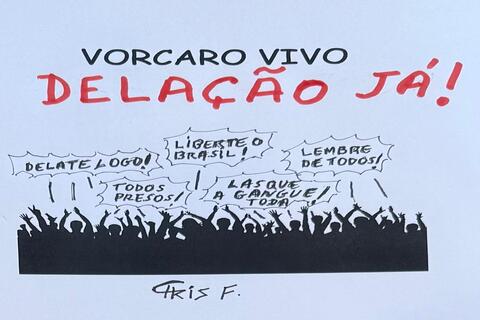 VORCARO VIVO
DELAÇÃO JÁ!
DELATE LOGO!
LIBERTE O
BRASIL!
LEMBRE
DE TODOS!
TODOS
PRESOS!
LASQUE
A GANGUE
TODA!
CRIS F.